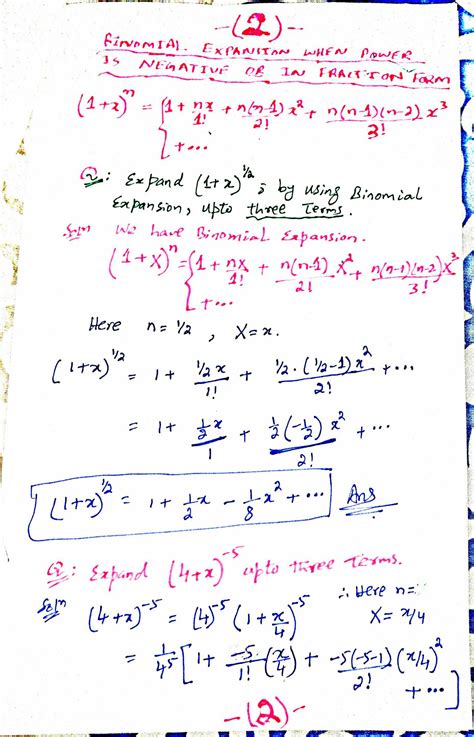 -(2)-
BINOMIAL EXPANSION WHEN POWER
IS NEGATIVE OR IN FRACTION FORM
(1+x)^n = {1 + nx/1! + n(n-1)/2! x² + n(n-1)(n-2)/3! x³
+ ...
Q: Expand (1+x)^1/2, by using Binomial
Expansion, upto three Terms.
Soln We have Binomial Expansion.
(1+X)^n = {1 + nX/1! + n(n-1)/2! X² + n(n-1)(n-2)/3! X³
+ ...
Here n = 1/2, X = x.
(1+x)^1/2 = 1 + 1/2 x/1! + 1/2 . (1/2 - 1) x²/2! + ...
= 1 + 1/2 x/1 + 1/2 (-1/2) x²/2! + ...
(1+x)^1/2 = 1 + 1/2 x - 1/8 x² + ... Ans
Q: Expand (4+x)^-5 upto three Terms.
Soln (4+x)^-5 = (4)^-5 (1 + x/4)^-5 ∴ Here n =
X = x/4
= 1/4^5 [1 + -5/1! (x/4) + -5(-5-1)/2! (x/4)²
+ ...]
-(2)-